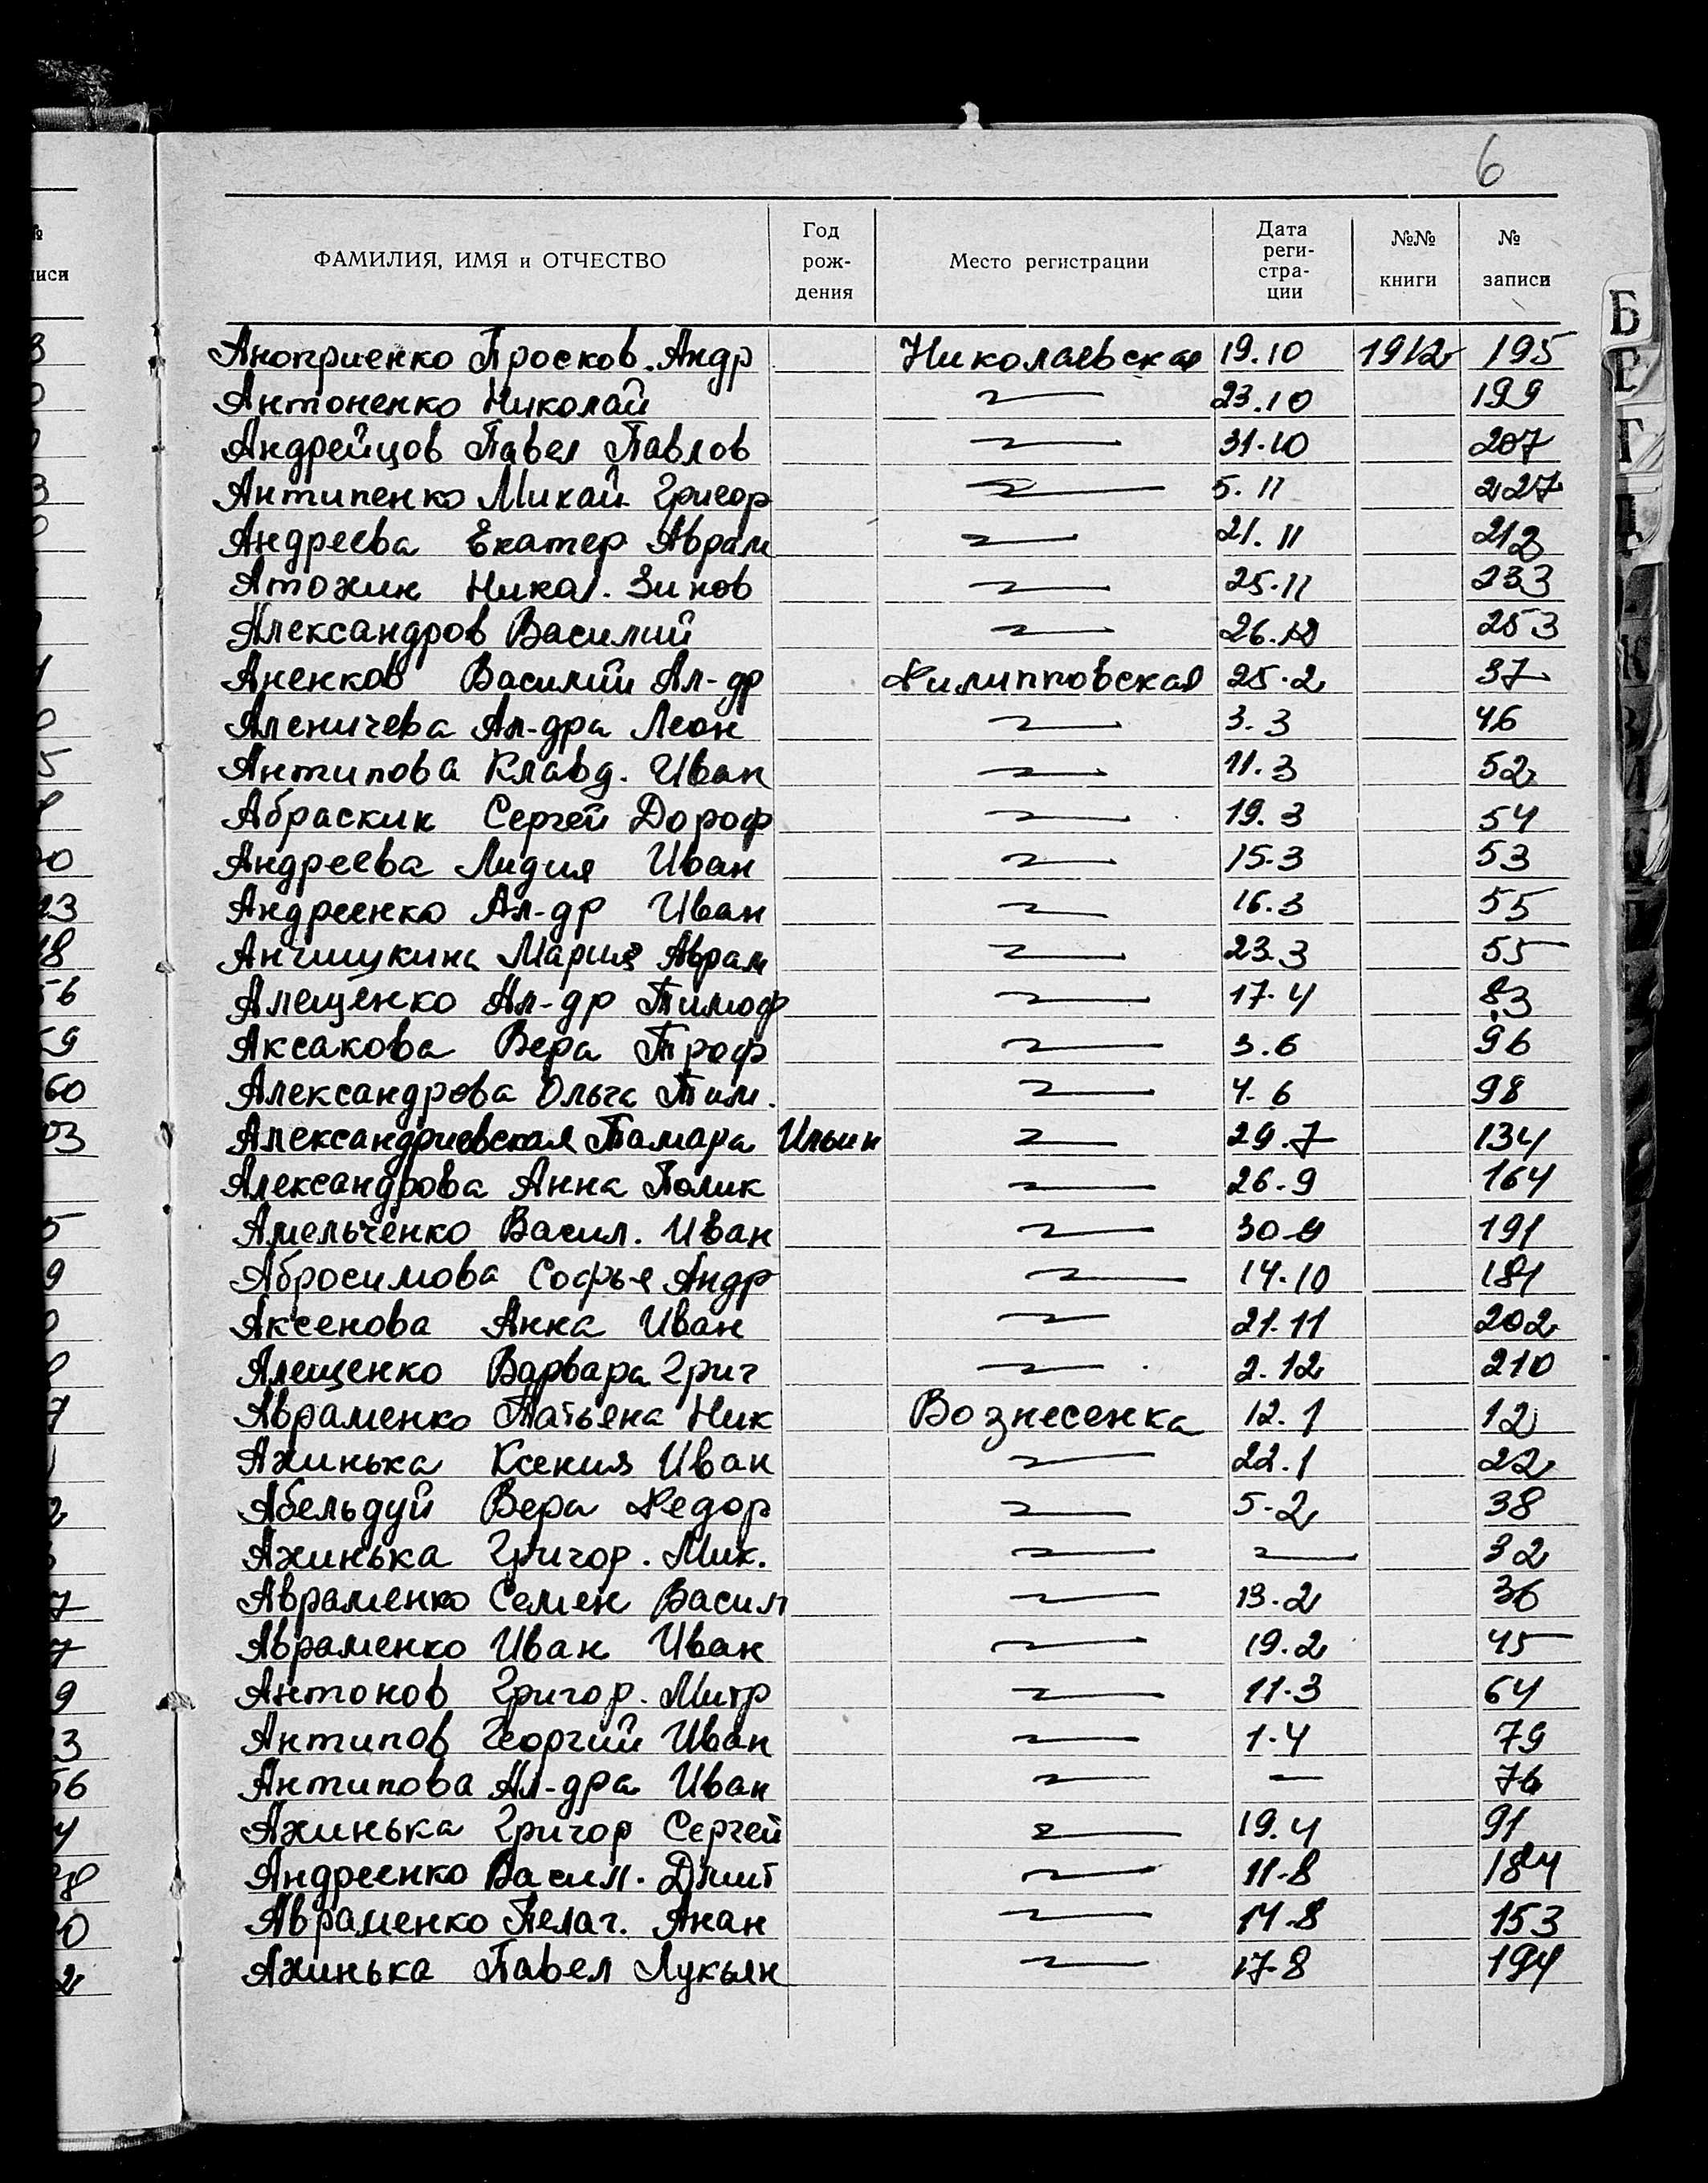 6
ФАМИЛИЯ, ИМЯ и ОТЧЕСТВО Год рож- дения Место регистрации Дата реги- стра- ции №№ книги № записи
Аноприенко Просков. Андр Николаевская 19.10 1912 195
Антоненко Николай 23.10 199
Андрейцов Павел Павлов 31.10 207
Антипенко Михаи. Григор 5.11 227
Андреева Екатер Аврам 21.11 212
Атохин Никол. Зинов 25.11 233
Александров Василий 26. 253
Аненков Василий Ал-др Филипповская 25.2 37
Аленичева Ал-дра Леон 3.3 46
Антипова Клавд. Иван 11.3 52
Абраскин Сергей Дороф 19.3 54
Андреева Лидия Иван 15.3 53
Андреенко Ал-др Иван 16.3 55
Анчишукина Мария Аврам 23.3 55
Алещенко Ал-др Тимоф 17.4 83
Аксакова Вера Троф 3.6 96
Александрова Ольга Тим. 4.6 98
Александриевская Тамара Ильин 29.7 134
Александрова Анна Полик 26.9 164
Амельченко Васил. Иван 30.9 191
Абросимова Софья Андр 14.10 181
Аксенова Анна Иван 21.11 202
Алещенко Варвара Григ 2.12 210
Авраменко Татьяна Ник Вознесенка 12.1 12
Ахинька Ксения Иван 22.1 22
Абельдуй Вера Федор 5.2 38
Ахинька Григор. Мих. 32
Авраменко Семен Васил 13.2 36
Авраменко Иван Иван 19.2 45
Антонов Григор. Митр 11.3 64
Антипов Георгий Иван 1.4 79
Антипова Ал-дра Иван — 76
Ахинька Григор Сергей 19.4 91
Андреенко Васил. Дмит 11.8 184
Авраменко Пелаг. Анан 14.8 153
Ахинька Павел Лукьян 17.8 194
Б